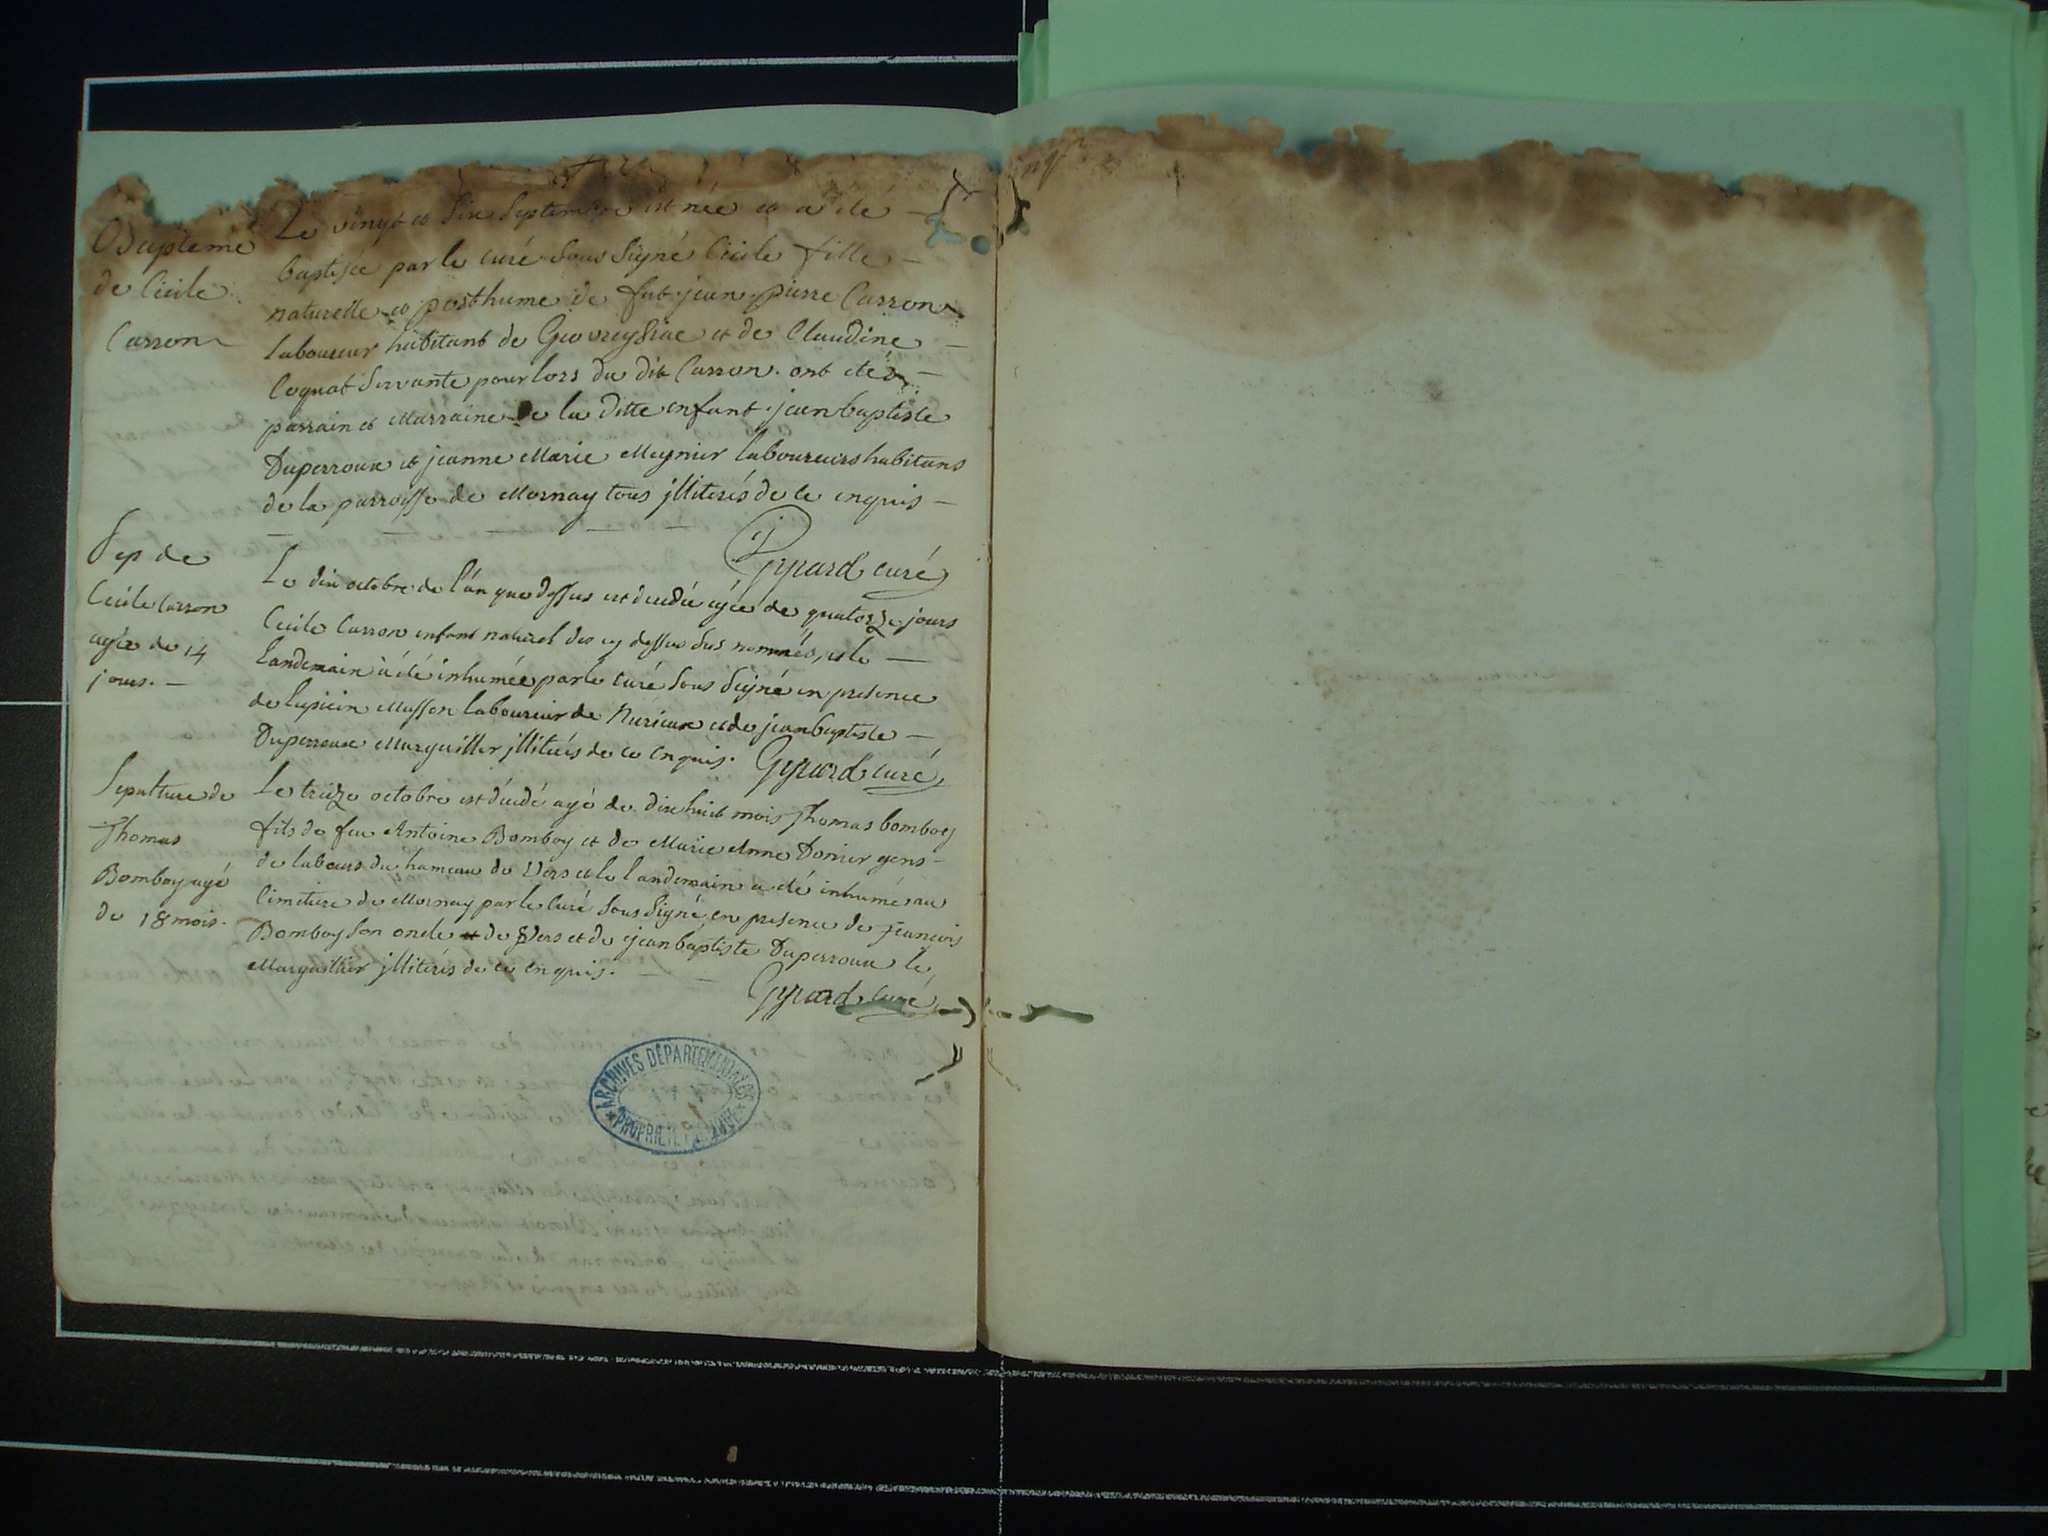 Bapteme
de Cicile
Carron
Le vingt et six Septembre est née et a été
baptisée par le curé Sous Signé Cicile fille
naturelle et posthume de fut jean pierre Carron
laboureur habitant de Geovreyssiac et de Claudine
Coquat Servante pour lors du dit Carron. ont été
parrain et Marraine de la ditte enfant jean baptiste
Duperroux et jeanne Marie Meynier laboureurs habitans
de la parroisse de Mornay tous jlliterés de ce enquis
Gyrard curé
Sep de
Cicile Carron
agée de 14
jours.
Le dix octobre de l'an que dessus est decedée agée de quatorze jours
Cicile Carron enfant naturel des cy dessus dus nommés, et le
landemain à été inhumée par le curé Sous Signé en presence
de lupicin Masson laboureur de Nurieux et de jean baptiste
Duperroux Marguillier jlliterés de ce enquis. Gyrard curé
Sepulture de
Thomas
Bomboy agé
de 18 mois.
Le treize octobre est décédé agé de dix huit mois Thomas bomboy
fils de feu Antoine Bomboy et de Marie Anne Donier gens
de labeurs du hameau de Vers et le landemain a été inhumé au
Cimitiere de Mornay par le Curé Sous Signé en presence de françois
Bomboy Son oncle de Vers et de jean baptiste Duperroux le
Marguillier jlliterés de ce enquis.
Gyrard curé
ARCHIVES DÉPARTEMENTALES
PROPRIÉTÉ PUBLIQUE